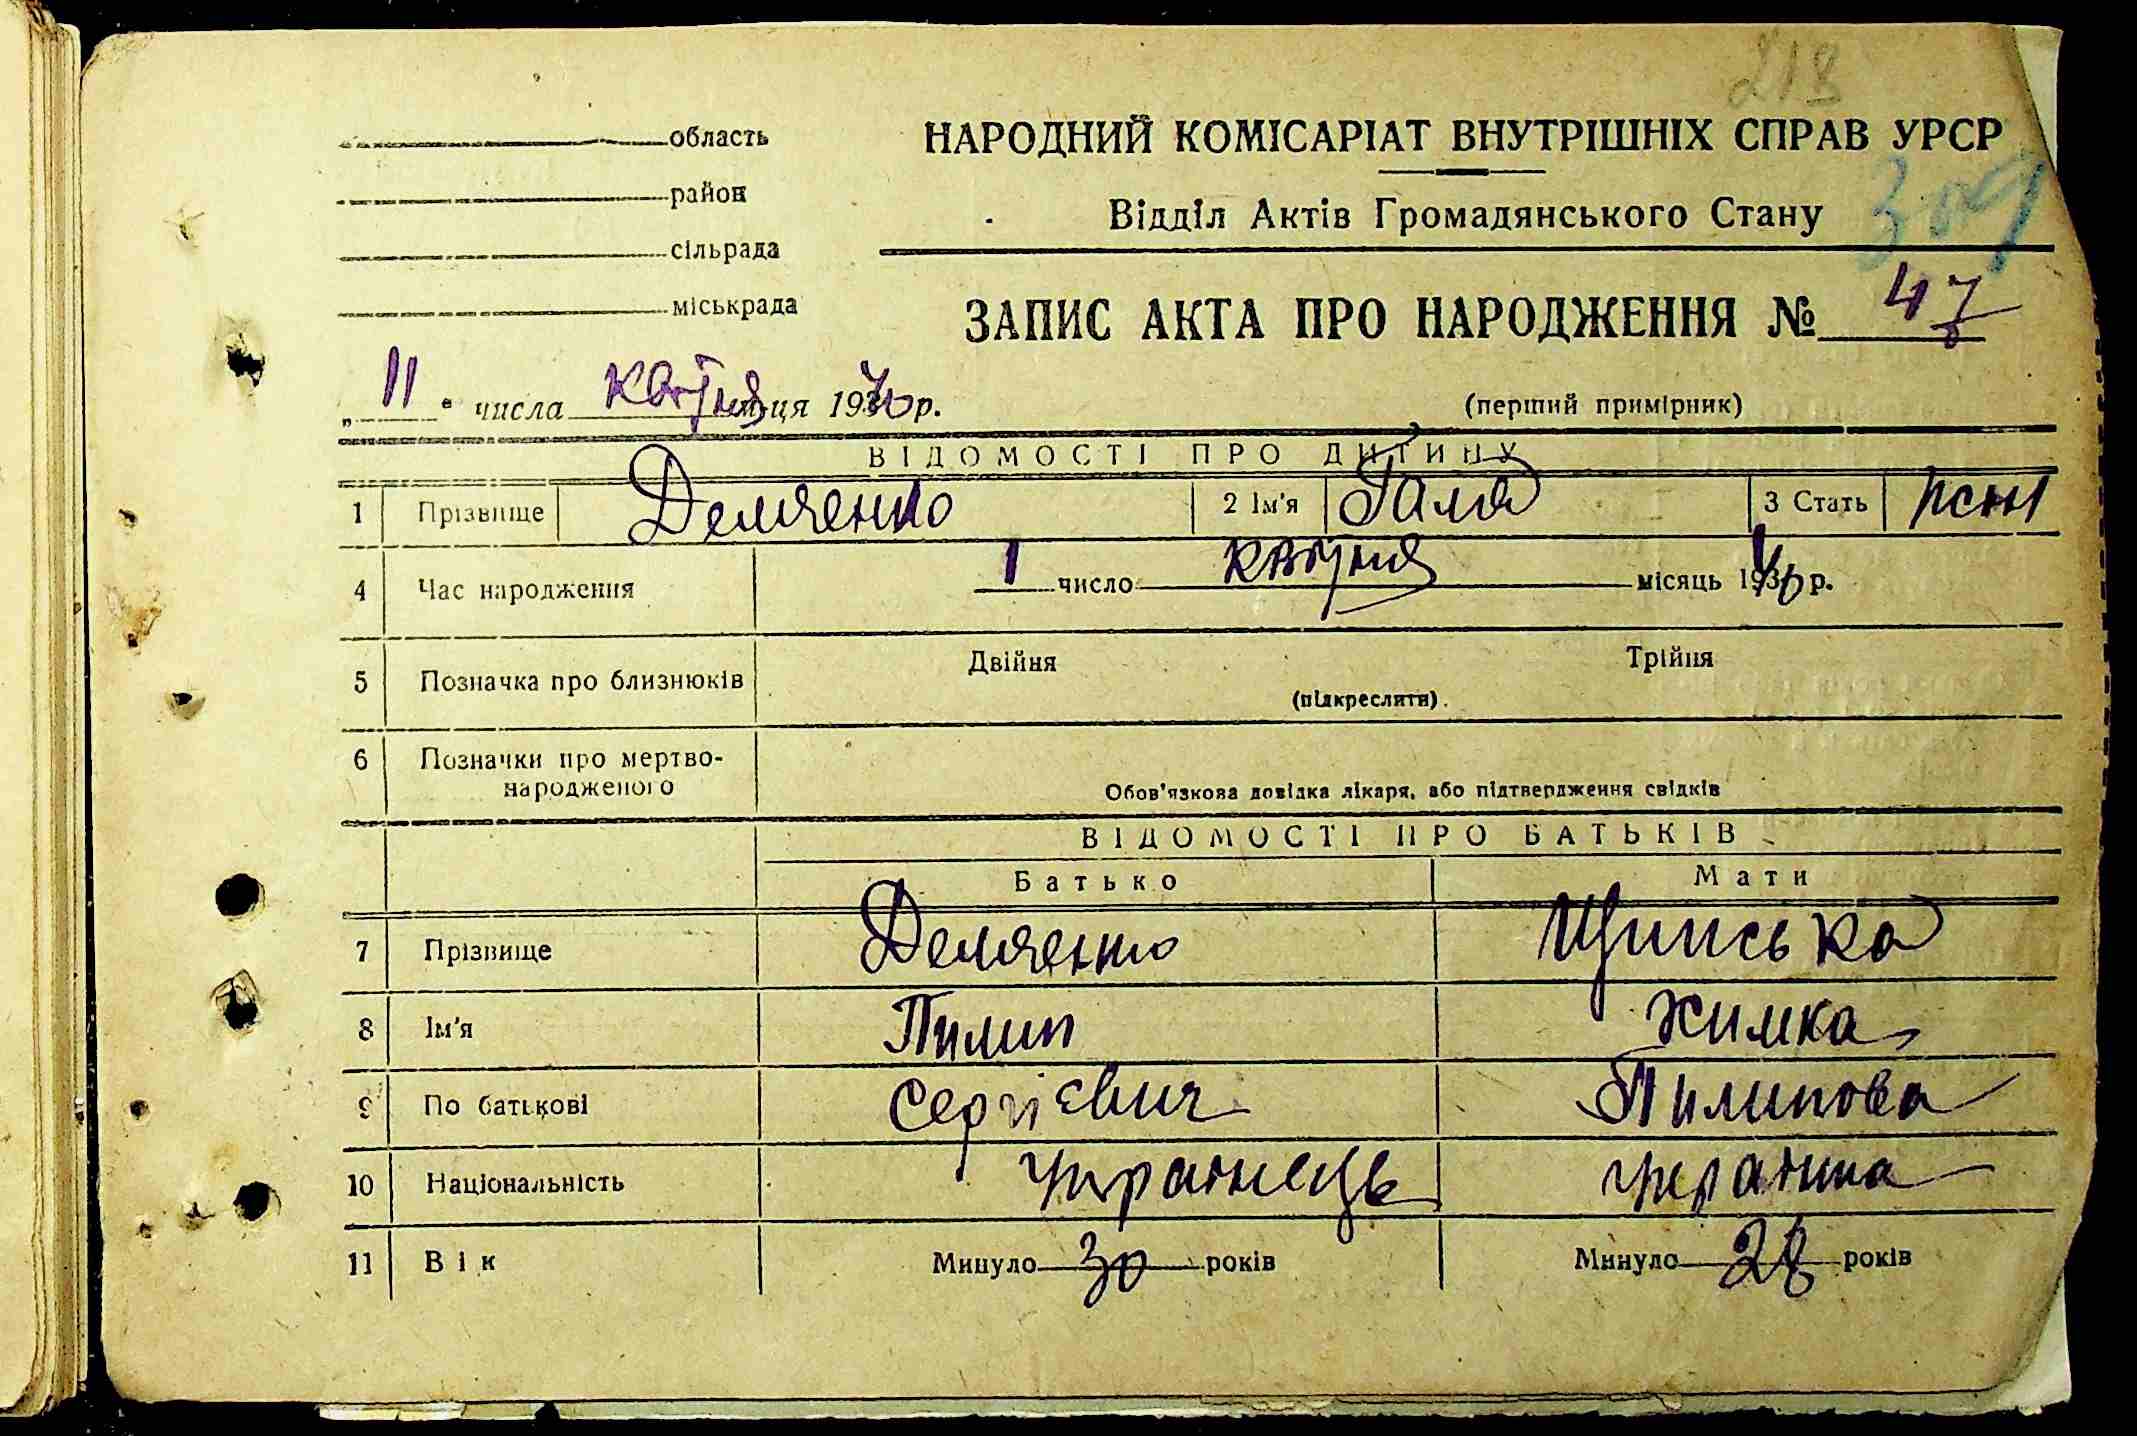 218
область
НАРОДНИЙ КОМІСАРІАТ ВНУТРІШНІХ СПРАВ УРСР
район
309
Відділ Актів Громадянського Стану
сільрада
міськрада
ЗАПИС АКТА ПРО НАРОДЖЕННЯ № 47
„ 11 " числа квітня місяця 1940 р.
(перший примірник)
ВІДОМОСТІ ПРО ДИТИНУ
1 Прізвище Демченко 2 Ім'я Галя 3 Стать жін
4 Час народження 1 число квітня місяць 1940 р.
5 Позначка про близнюків Двійня Трійня
(підкреслити).
6 Позначки про мертво-
народженого Обов'язкова довідка лікаря, або підтвердження свідків
ВІДОМОСТІ ПРО БАТЬКІВ
Батько Мати
7 Прізвище Демченко
8 Ім'я Пилип Химка
9 По батькові Сергієвич Пилипова
10 Національність Українець Українка
11 Вік Минуло 30 років Минуло 28 років